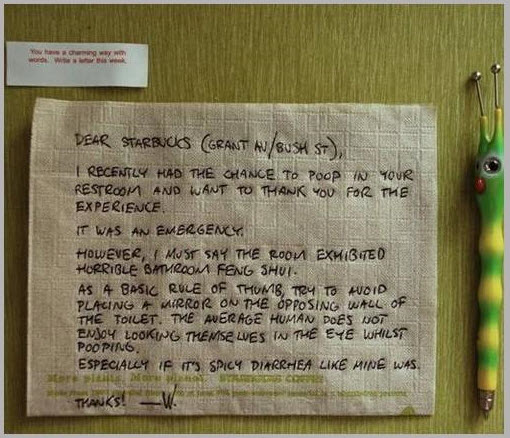 You have a charming way with
words. Write a letter this week.
DEAR STARBUCKS (GRANT AV/BUSH ST),
I RECENTLY HAD THE CHANCE TO POOP IN YOUR
RESTROOM AND WANT TO THANK YOU FOR THE
EXPERIENCE.
IT WAS AN EMERGENCY.
HOWEVER, I MUST SAY THE ROOM EXHIBITED
HORRIBLE BATHROOM FENG SHUI.
AS A BASIC RULE OF THUMB, TRY TO AVOID
PLACING A MIRROR ON THE OPPOSING WALL OF
THE TOILET. THE AVERAGE HUMAN DOES NOT
ENJOY LOOKING THEMSELVES IN THE EYE WHILST
POOPING.
ESPECIALLY IF IT'S SPICY DIARRHEA LIKE MINE WAS.
More plants. More planet.
THANKS! —W.